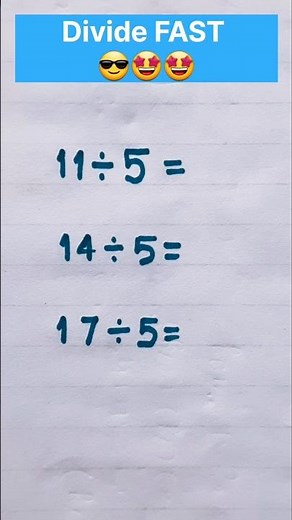 Divide FAST
😎🤩🤩
11÷5=
14÷5=
17÷5=